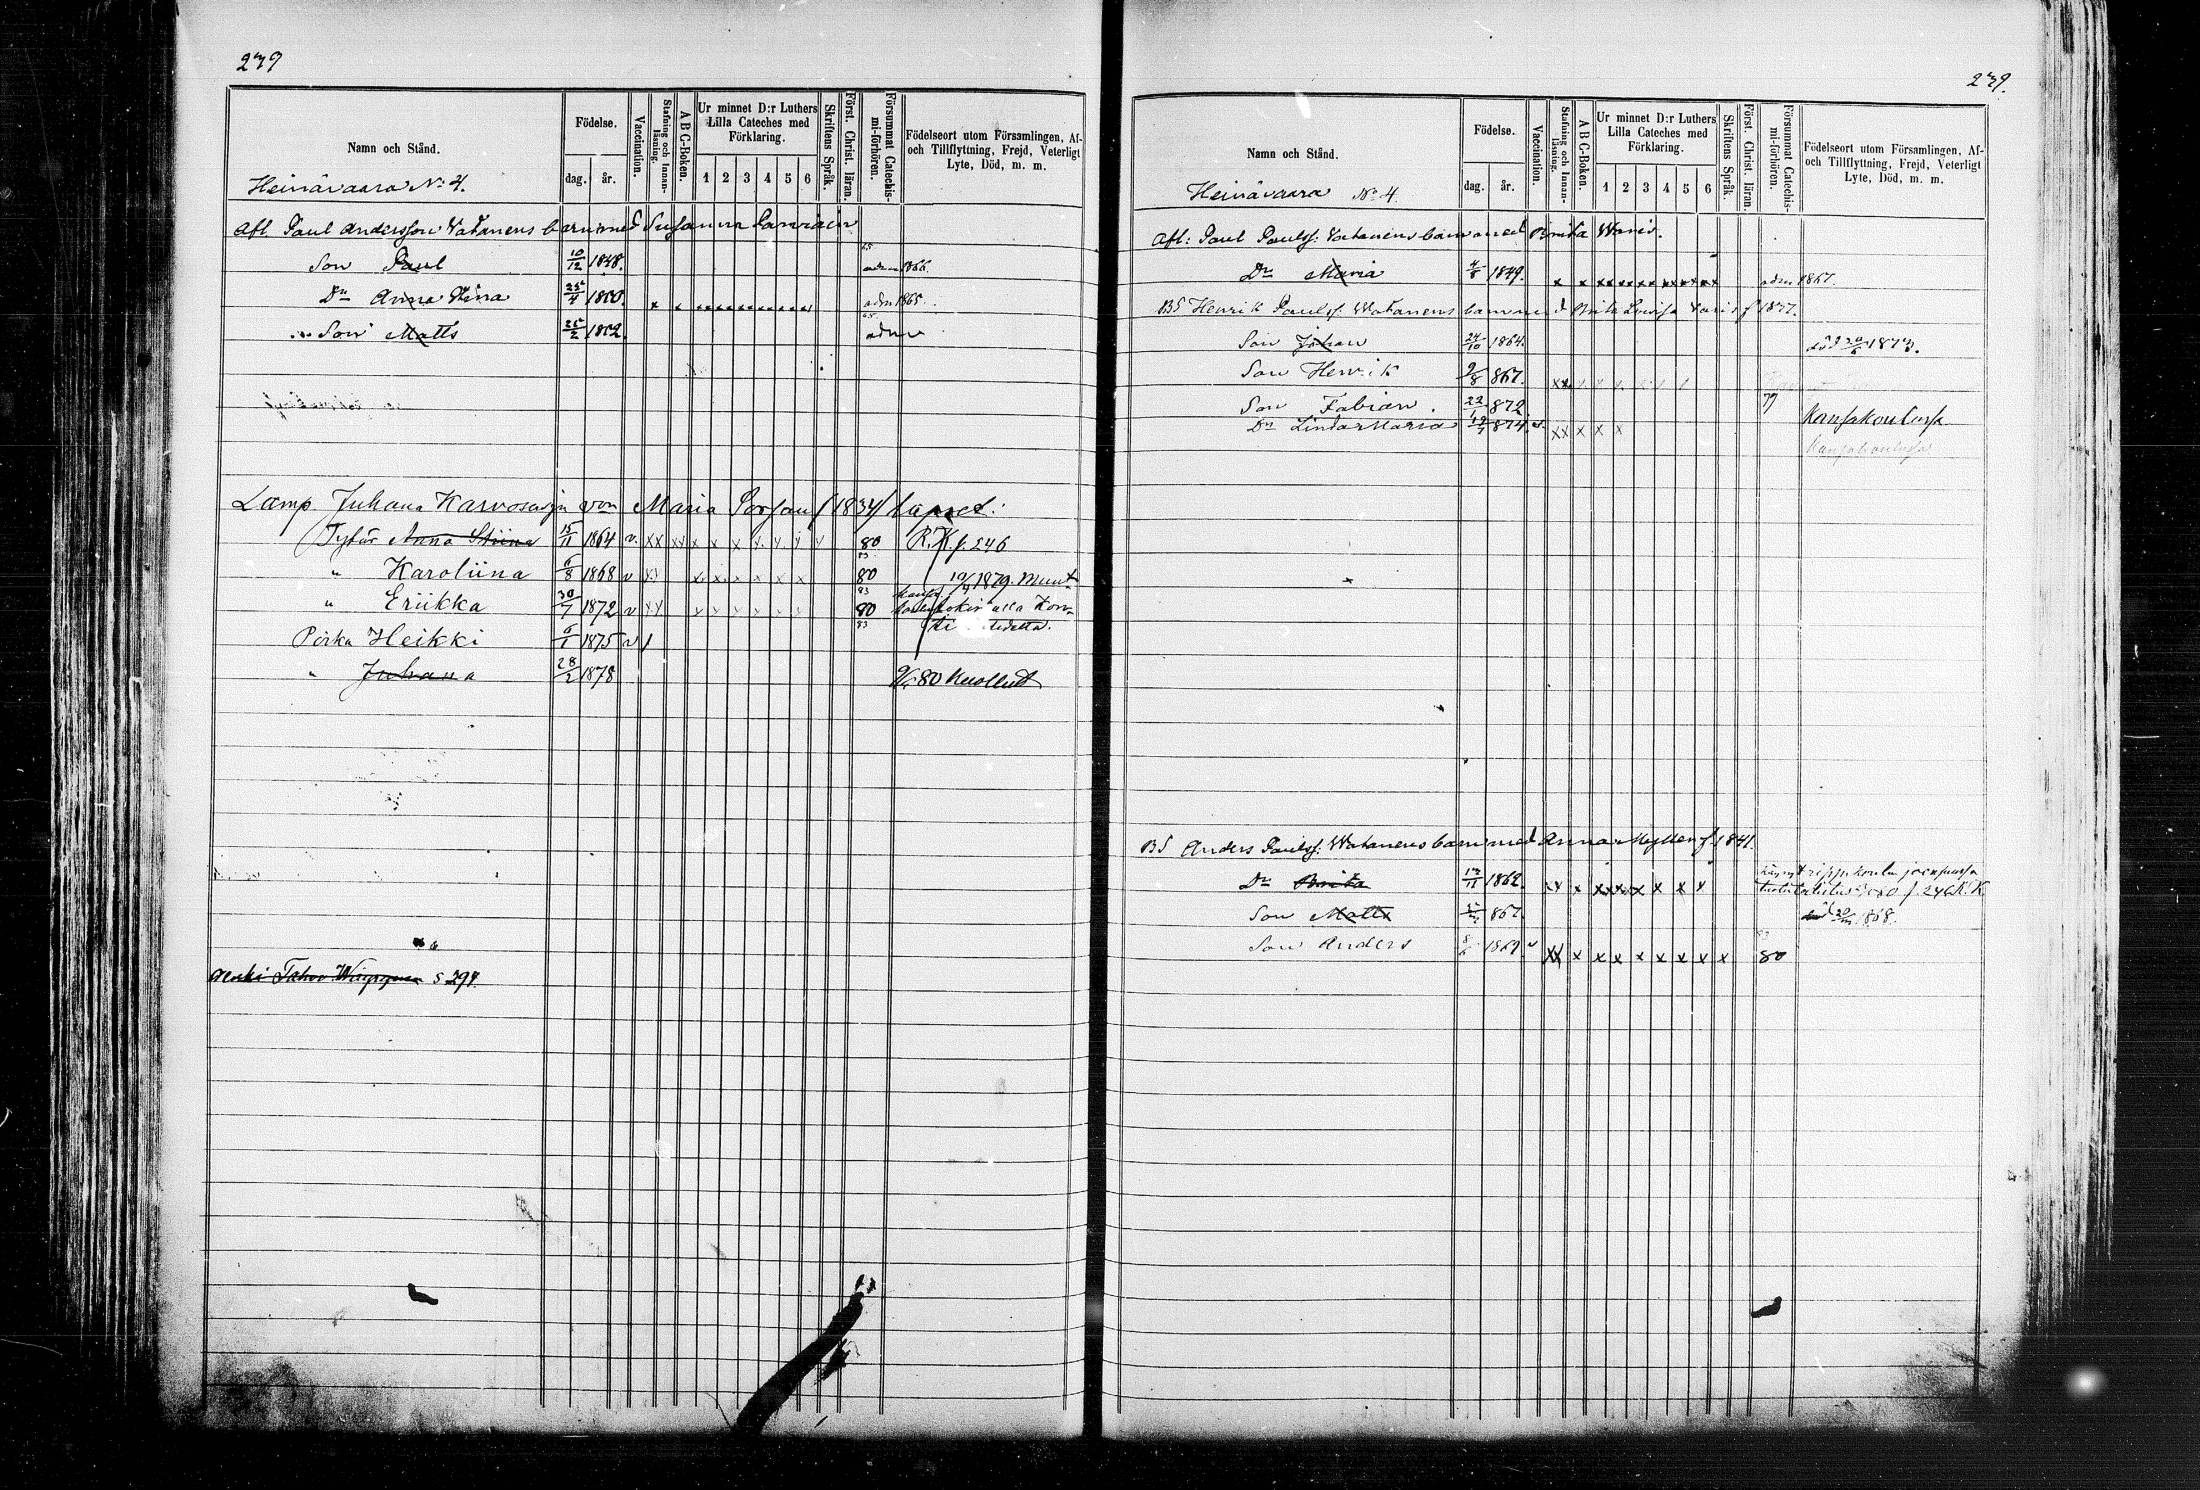 239
Namn och Stånd.
Födelse.
dag. år.
Vaccination.
Stafning och Innan-läsning.
A B C-Boken.
Ur minnet D:r Luthers Lilla Cateches med Förklaring.
1 2 3 4 5 6
Skriftens Språk.
Först. Christ. läran.
Försummat Catechis-mi-förhören.
Födelseort utom Församlingen, Af- och Tillflyttning, Frejd, Veterligt Lyte, Död, m. m.
Heinävaara No 4.
Afl. Paul Andersson Vatanens barn med Susanna
Son Paul 10/12 1848. 1866.
Dr Anna Stina 25/4 1850. x x x x x x x x adm 1865.
Son Matts 25/2 1852. adm
Lamp. Juhana Karvosen ja von Maria (1834) lapset:
Tytär Anna Stiina 15/11 1864 v. xx xx x x x x x x v 80 R.K. f. 246
" Karoliina 6/8 1868 v xx x x x x x x 80 10/4 1879. Muut-
" Eriikka 30/7 1872 v xx x x x x x x 80 83
Poika Heikki 6/1 1875 v
" Juhana 28/2 1878 80 kuollut
S 294.
239.
Namn och Stånd.
Födelse.
dag. år.
Vaccination.
Stafning och Innan-läsning.
A B C-Boken.
Ur minnet D:r Luthers Lilla Cateches med Förklaring.
1 2 3 4 5 6
Skriftens Språk.
Först. Christ. läran.
Försummat Catechis-mi-förhören.
Födelseort utom Församlingen, Af- och Tillflyttning, Frejd, Veterligt Lyte, Död, m. m.
Heinävaara No 4.
Afl: Paul Paulsf: Vatanens barn med Brita Waris.
Dr Maria 4/8 1849. x x x x x x x x adm 1867.
BS Henrik Paulsf: Watanens barn med Brita Lovisa Varis f 1837.
Son Johan 24/10 1864. död 20/6 1873.
Son Henrik 9/8 867.
Son Fabian 22 872 77 Kansakoulussa
Dr Linda Maria 19/7 874. v. xx x x x Kansakoulussa
BS Anders Paulsf: Watanens barn med Anna f. 1841.
Dr Brita 17/11 1862. xx x x x x x x x käynyt rippikoulu f 246 R.K.
Son Matts 867. 1868.
Son Anders 1869 v xx x x x x x x x x 80